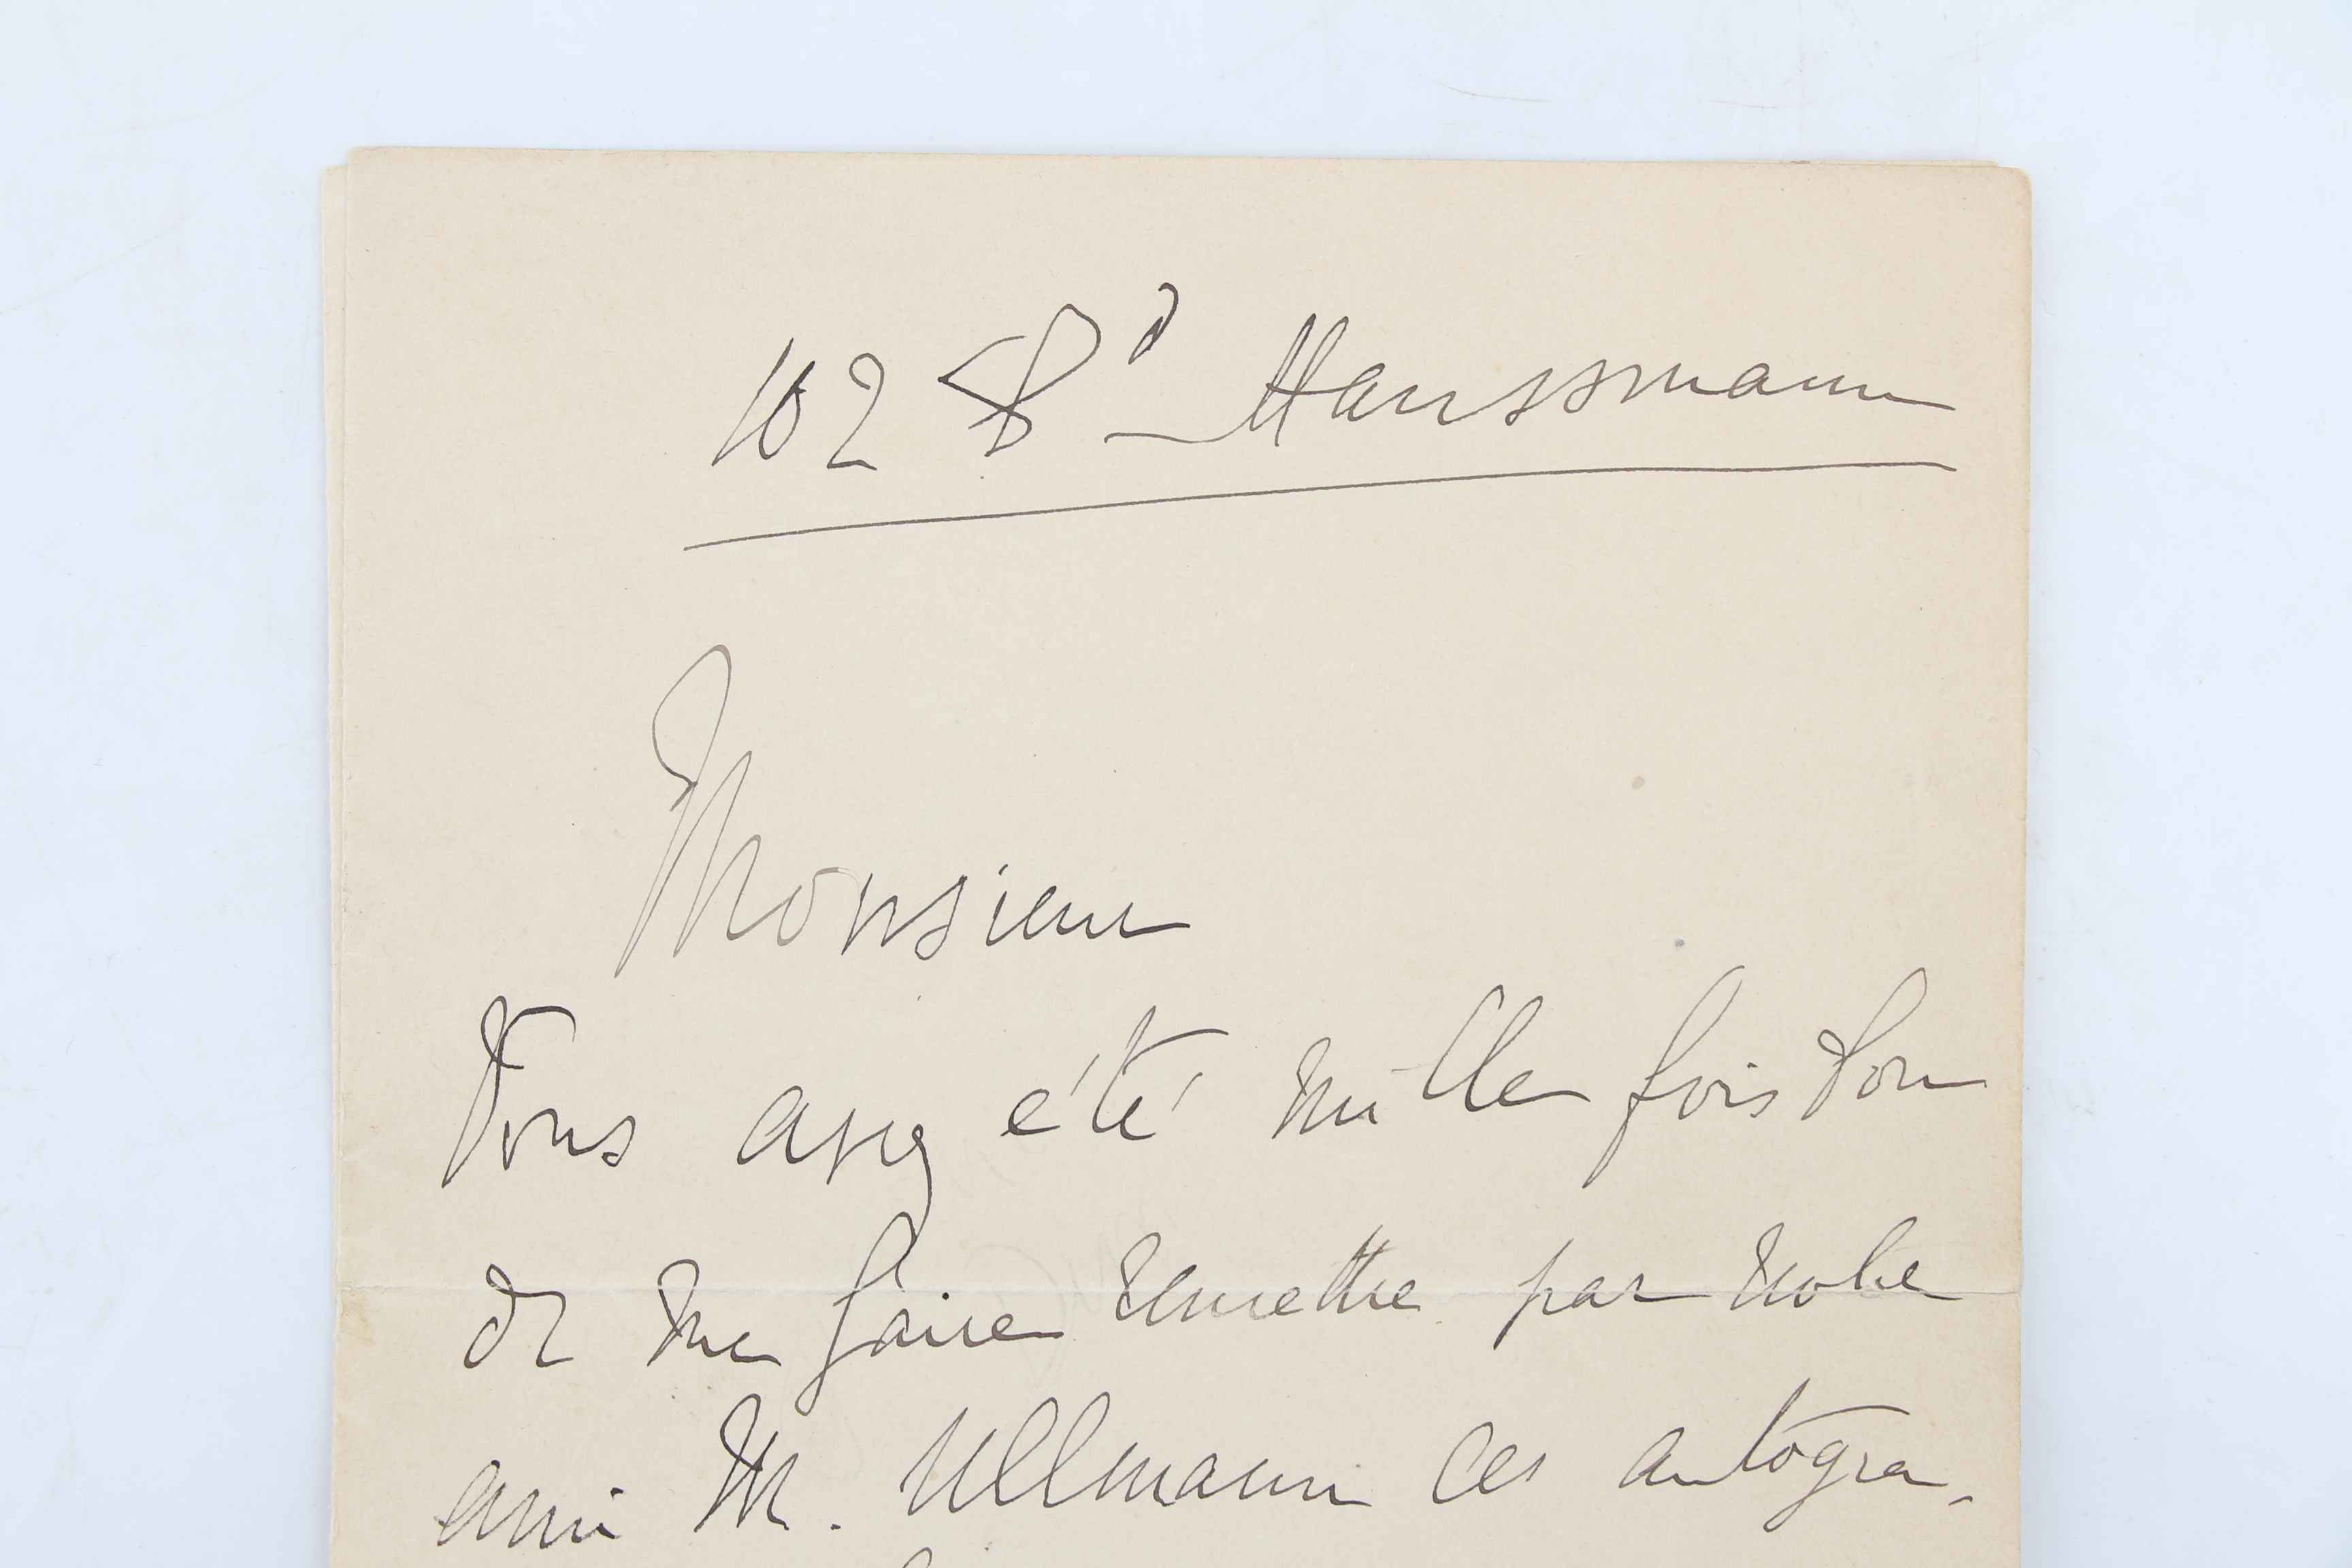 102 Bd Haussmann
Monsieur
Vous avez été mille fois bon
de me faire remettre par notre
ami M. Ullmann ces autogra-